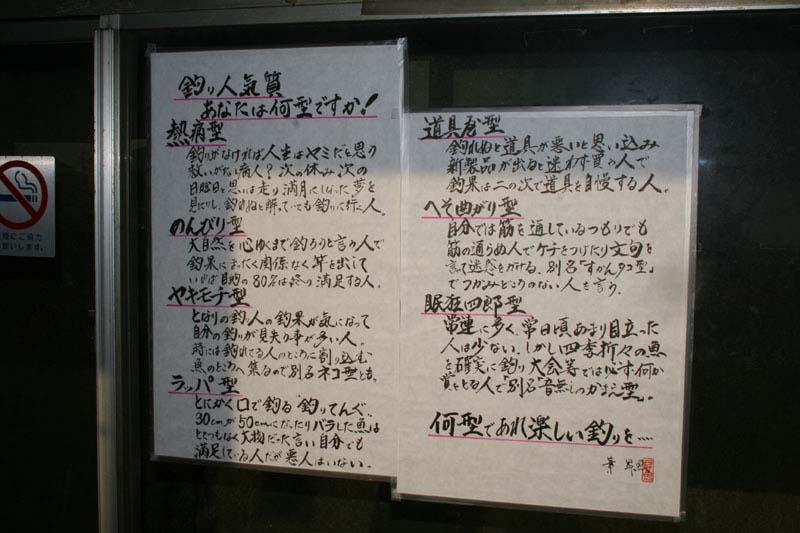 釣り人気質
あなたは何型ですか!
熱病型
釣りがなければ人生はヤミだと思う
救いがたい病人?次の休み次の
日曜日と思いは走り満月にしなった夢を
見たりし、釣れぬと解っていても釣りに行く人。
のんびり型
大自然を心ゆくまで釣ろうと言う人で
釣果にまったく関係なく竿を出して
いれば目的の80%は終り満足する人。
ヤキモチ型
となりの釣人の釣果が気になって
自分の釣りが見失う事が多い人。
時には釣れてる人のところに割り込む
魚のところへ集るので別名ネコ型とも。
ラッパ型
とにかく口で釣る"釣りてんぐ"、
30cmが50cmにだったりバラした魚は
とてつもなく大物だった言い自分でも
満足している人だが悪人はいない。
道具屋型
釣れぬと道具が悪いと思い込み
新製品が出ると迷わず買う人で
釣果は二の次で道具を自慢する人。
へそ曲がり型
自分では筋を通しているつもりでも
筋の通らぬ人でケチをつけたり文句を
言って迷惑をかける。別名"すかんタコ型"
でつかみどころのない人を言う。
眠狂四郎型
常連に多く、常日頃あまり目立った
人は少ない。しかし四季折々の魚
を確実に釣り大会等では必ず何か
賞をとる人で"別名"音無しのかまえ型"。
何型であれ楽しい釣りを……